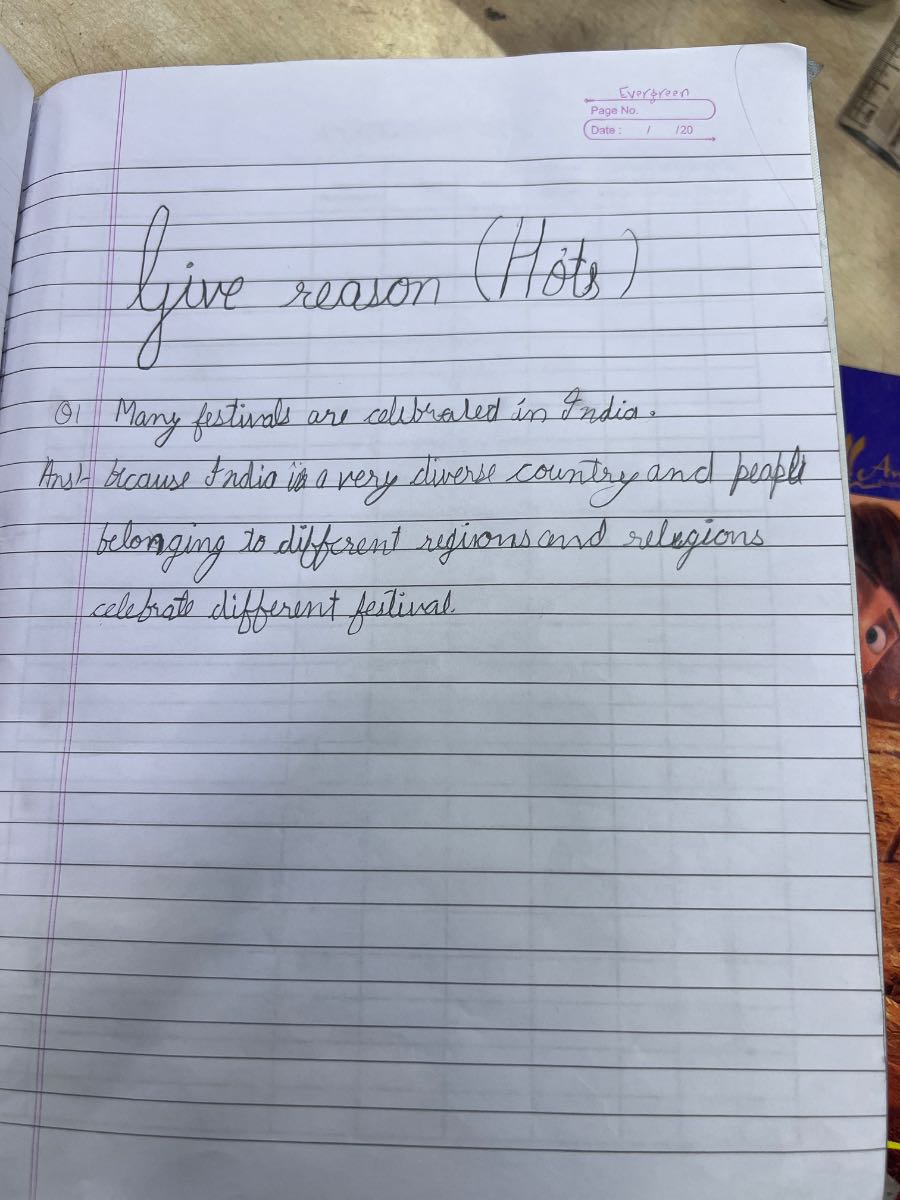 Evergreen
Page No.
Date : / /20
Give reason (Hots)
Q1 Many festivals are celebrated in India.
Ans:- because India is a very diverse country and people
belonging to different regions and relegions
celebrate different festival.